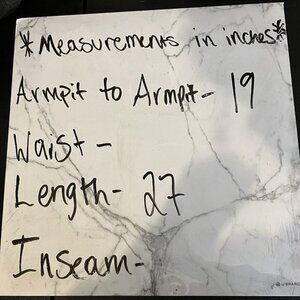 *Measurements in inches*
Armpit to Armpit- 19
Waist -
Length- 27
Inseam-